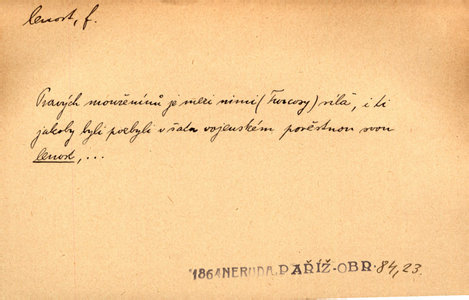 lenost, f.
Pravých mouřenínů je mezi nimi (Turcosy) síla, i ti
jakoby byli pozbyli v šatu vojenském pověstnou svou
lenost, ...
1864 NERUDA, PAŘÍŽ-OBR. 84,23.